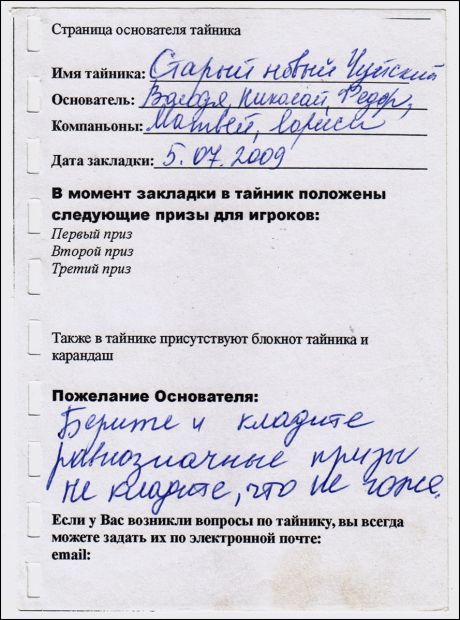 Страница основателя тайника
Имя тайника: Старый новый Чуйский
Основатель: Володя, Николай, Федор,
Компаньоны: Матвей, Лариса
Дата закладки: 5.07.2009
В момент закладки в тайник положены
следующие призы для игроков:
Первый приз
Второй приз
Третий приз
Также в тайнике присутствуют блокнот тайника и
карандаш
Пожелание Основателя:
Берите и кладите
равнозначные призы
Не кладите, что не гоже.
Если у Вас возникли вопросы по тайнику, вы всегда
можете задать их по электронной почте:
email: